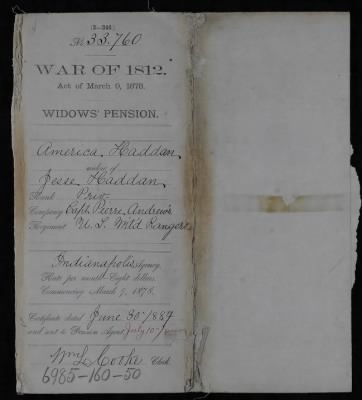 (3—246)
No. 33,760
WAR OF 1812.
Act of March 9, 1878.
WIDOWS' PENSION.
America Haddan,
widow of
Jesse Haddan,
Rank Priv.
Company Capt. Pierre Andre's
Regiment U.S. Mtd Rangers
Indianapolis Agency.
Rate per month Eight dollars.
Commencing March 9, 1878.
Certificate dated June 30 1884
and sent to Pension Agent, July 10
Wm L. Cooke Clerk
6985-160-50